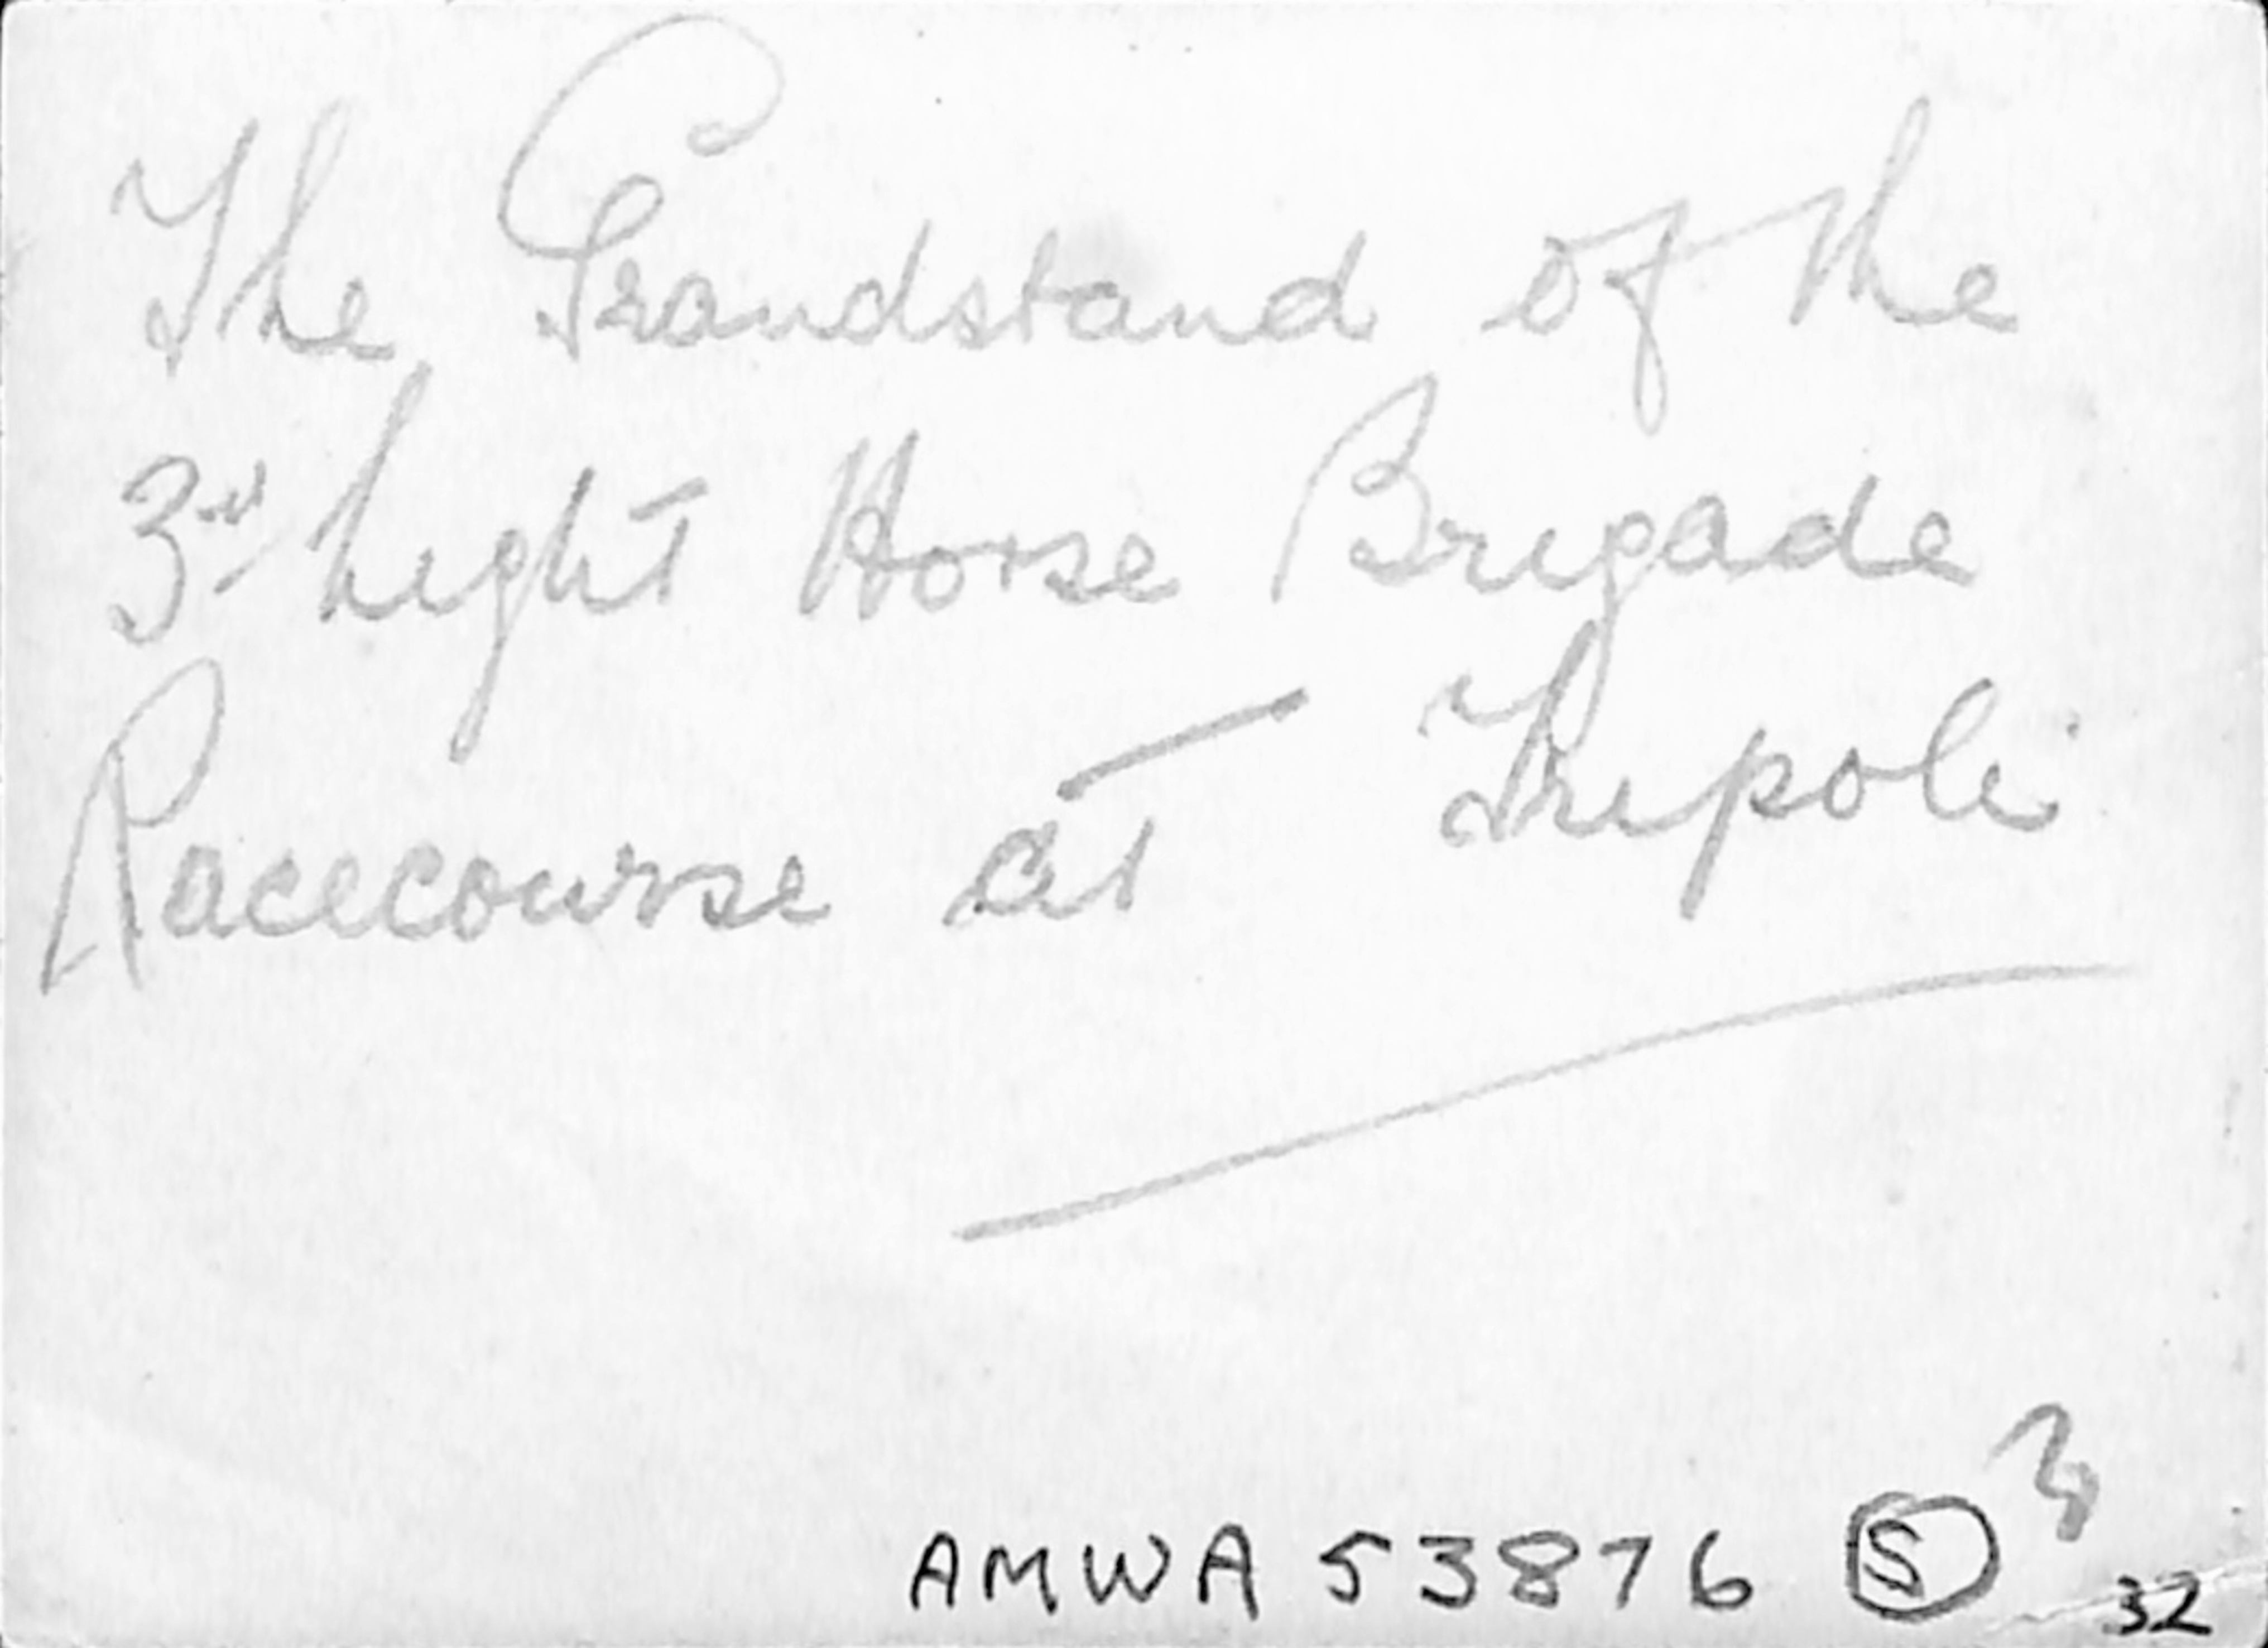 The Grandstand of the
3rd Light Horse Brigade
Racecourse at Tripoli
3
AMWA 53876 S
32